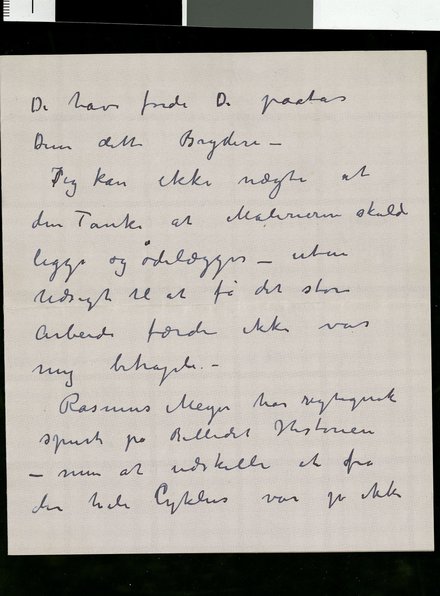 De havs frede De paatas
Dem dette Bryderi –
Jeg kan ikke nægte at
den Tanke at Malerierne skuld
ligge og ødelægges – uten
Udsigt til at få det store
Arbeide færdi ikke var
mig behageli. –
Rasmus Meyer har rigtignok
spurt på Billedet Historien
– men at udskille et fra
den hele Cyklus var jo ikke